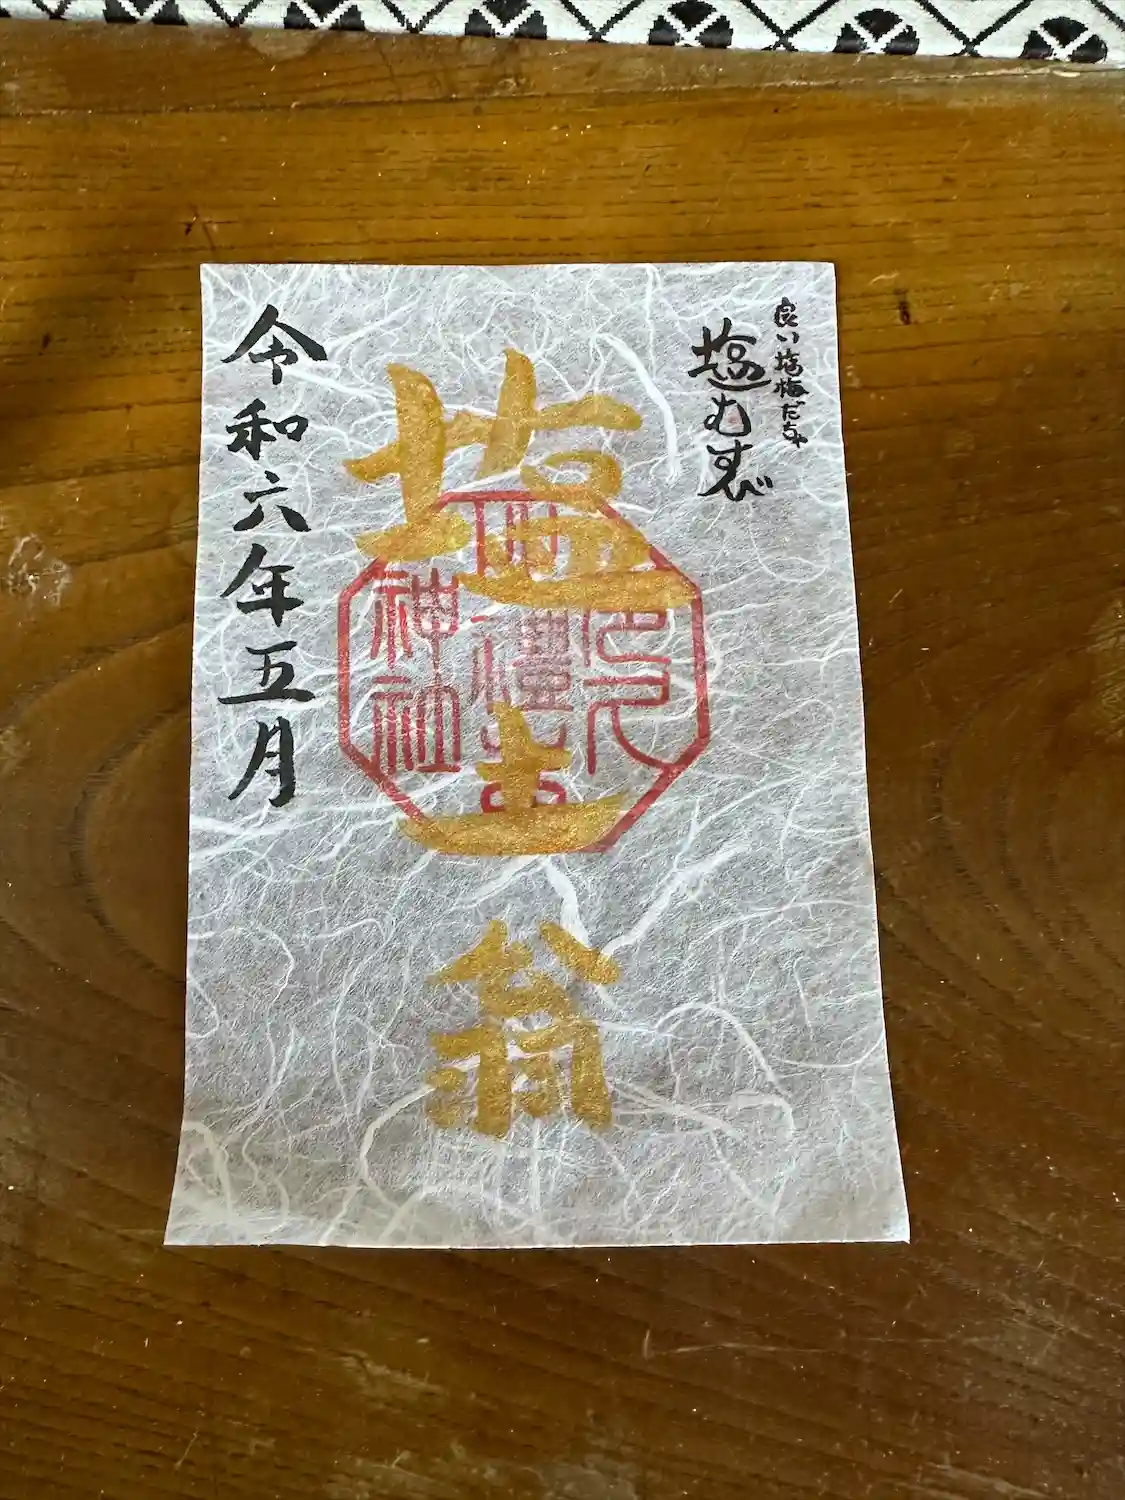 良い塩梅だちゃ
塩むすび
塩土翁
神社
令和六年五月